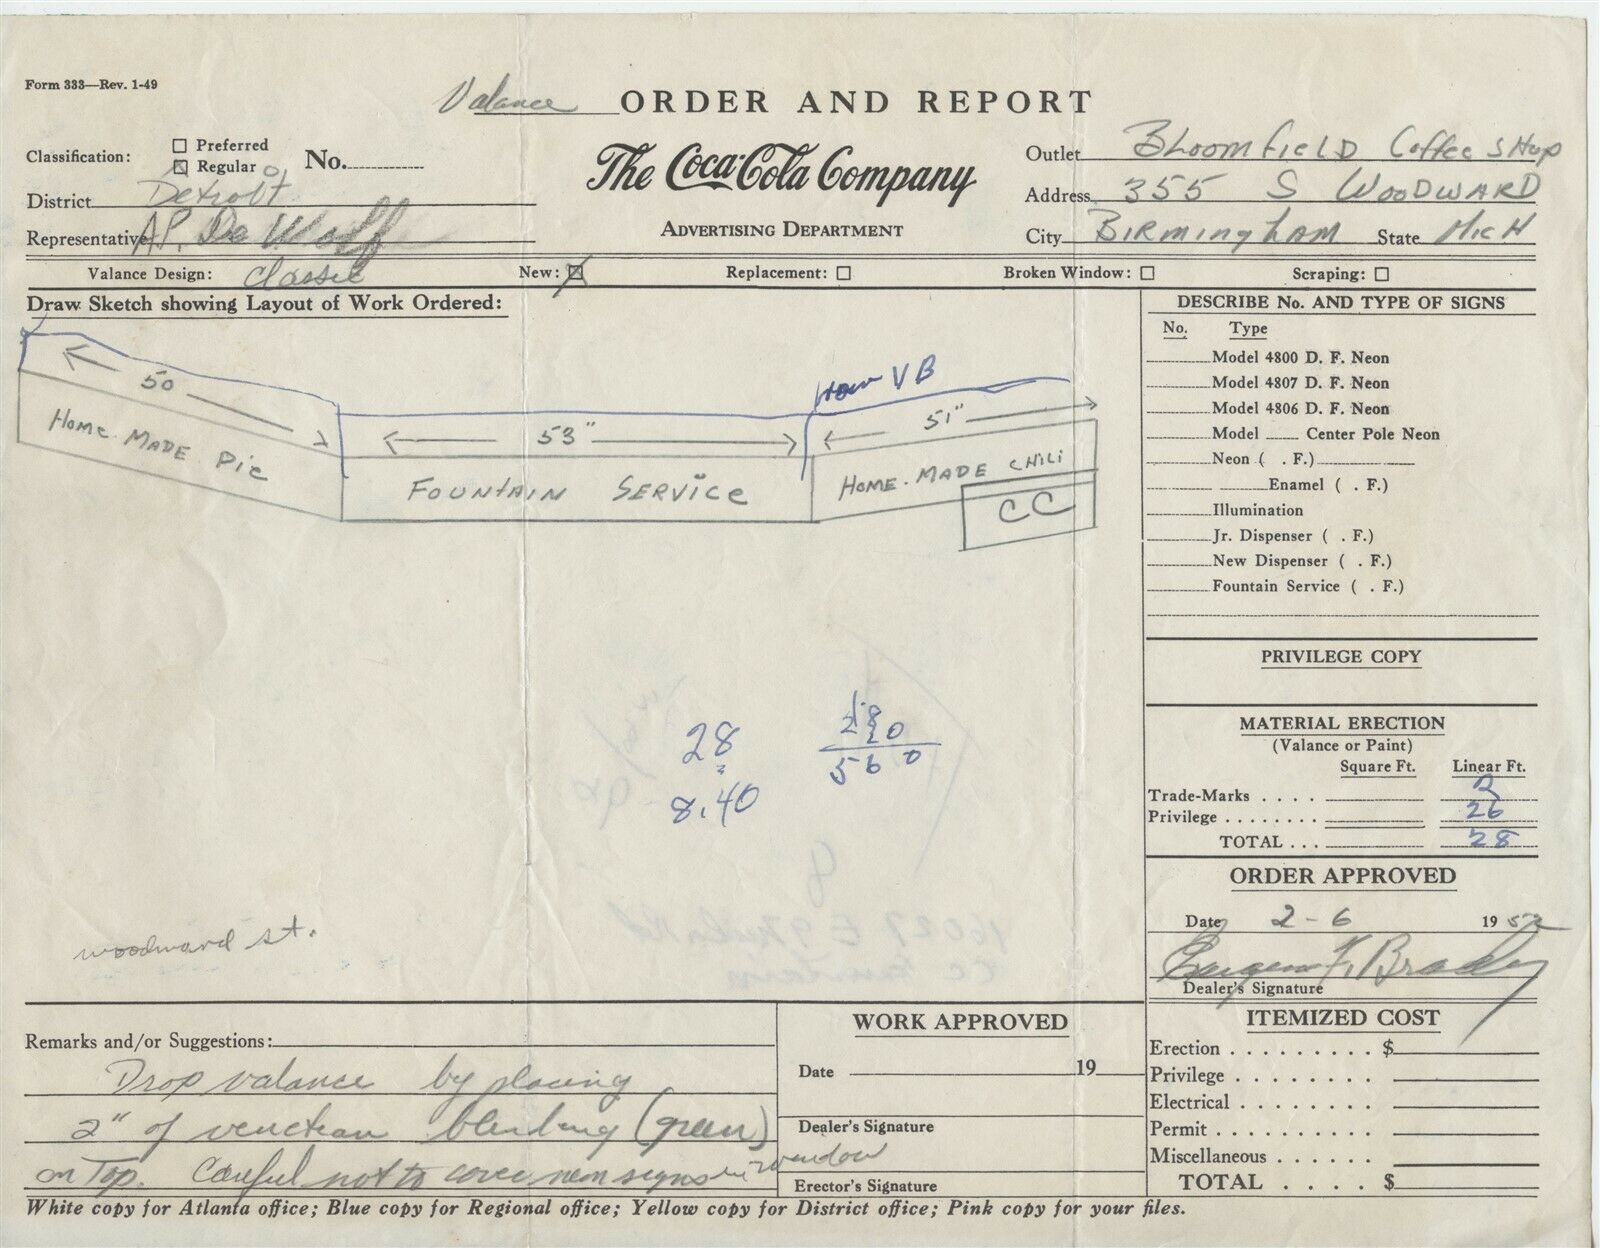 Form 333—Rev. 1-49
Valance ORDER AND REPORT
Classification: ☐ Preferred
☒ Regular No.
The Coca-Cola Company
ADVERTISING DEPARTMENT
District Detroit
Representative A.P. De Wolf
Outlet Bloomfield Coffee Shop
Address 355 S Woodward
City Birmingham State Mich
Valance Design: Classic New: ☒ Replacement: ☐ Broken Window: ☐ Scraping: ☐
Draw Sketch showing Layout of Work Ordered:
50
53"
VB
51"
Home Made Pie
Fountain Service
Home-Made Chili
CC
28
8.40
28
20
560
woodward st.
DESCRIBE No. AND TYPE OF SIGNS
No. Type
Model 4800 D. F. Neon
Model 4807 D. F. Neon
Model 4806 D. F. Neon
Model Center Pole Neon
Neon ( . F.)
Enamel ( . F.)
Illumination
Jr. Dispenser ( . F.)
New Dispenser ( . F.)
Fountain Service ( . F.)
PRIVILEGE COPY
MATERIAL ERECTION
(Valance or Paint)
Square Ft. Linear Ft.
Trade-Marks .... 2
Privilege ........ 26
TOTAL ... 28
ORDER APPROVED
Date 2-6 1952
F. Brady
Dealer's Signature
Remarks and/or Suggestions:
Drop valance by placing
2" of venetian blending (green)
on Top. Careful not to cover neon signs in window
WORK APPROVED
Date 19
Dealer's Signature
Erector's Signature
ITEMIZED COST
Erection ......... $
Privilege ........
Electrical ........
Permit ...........
Miscellaneous ......
TOTAL .... $
White copy for Atlanta office; Blue copy for Regional office; Yellow copy for District office; Pink copy for your files.